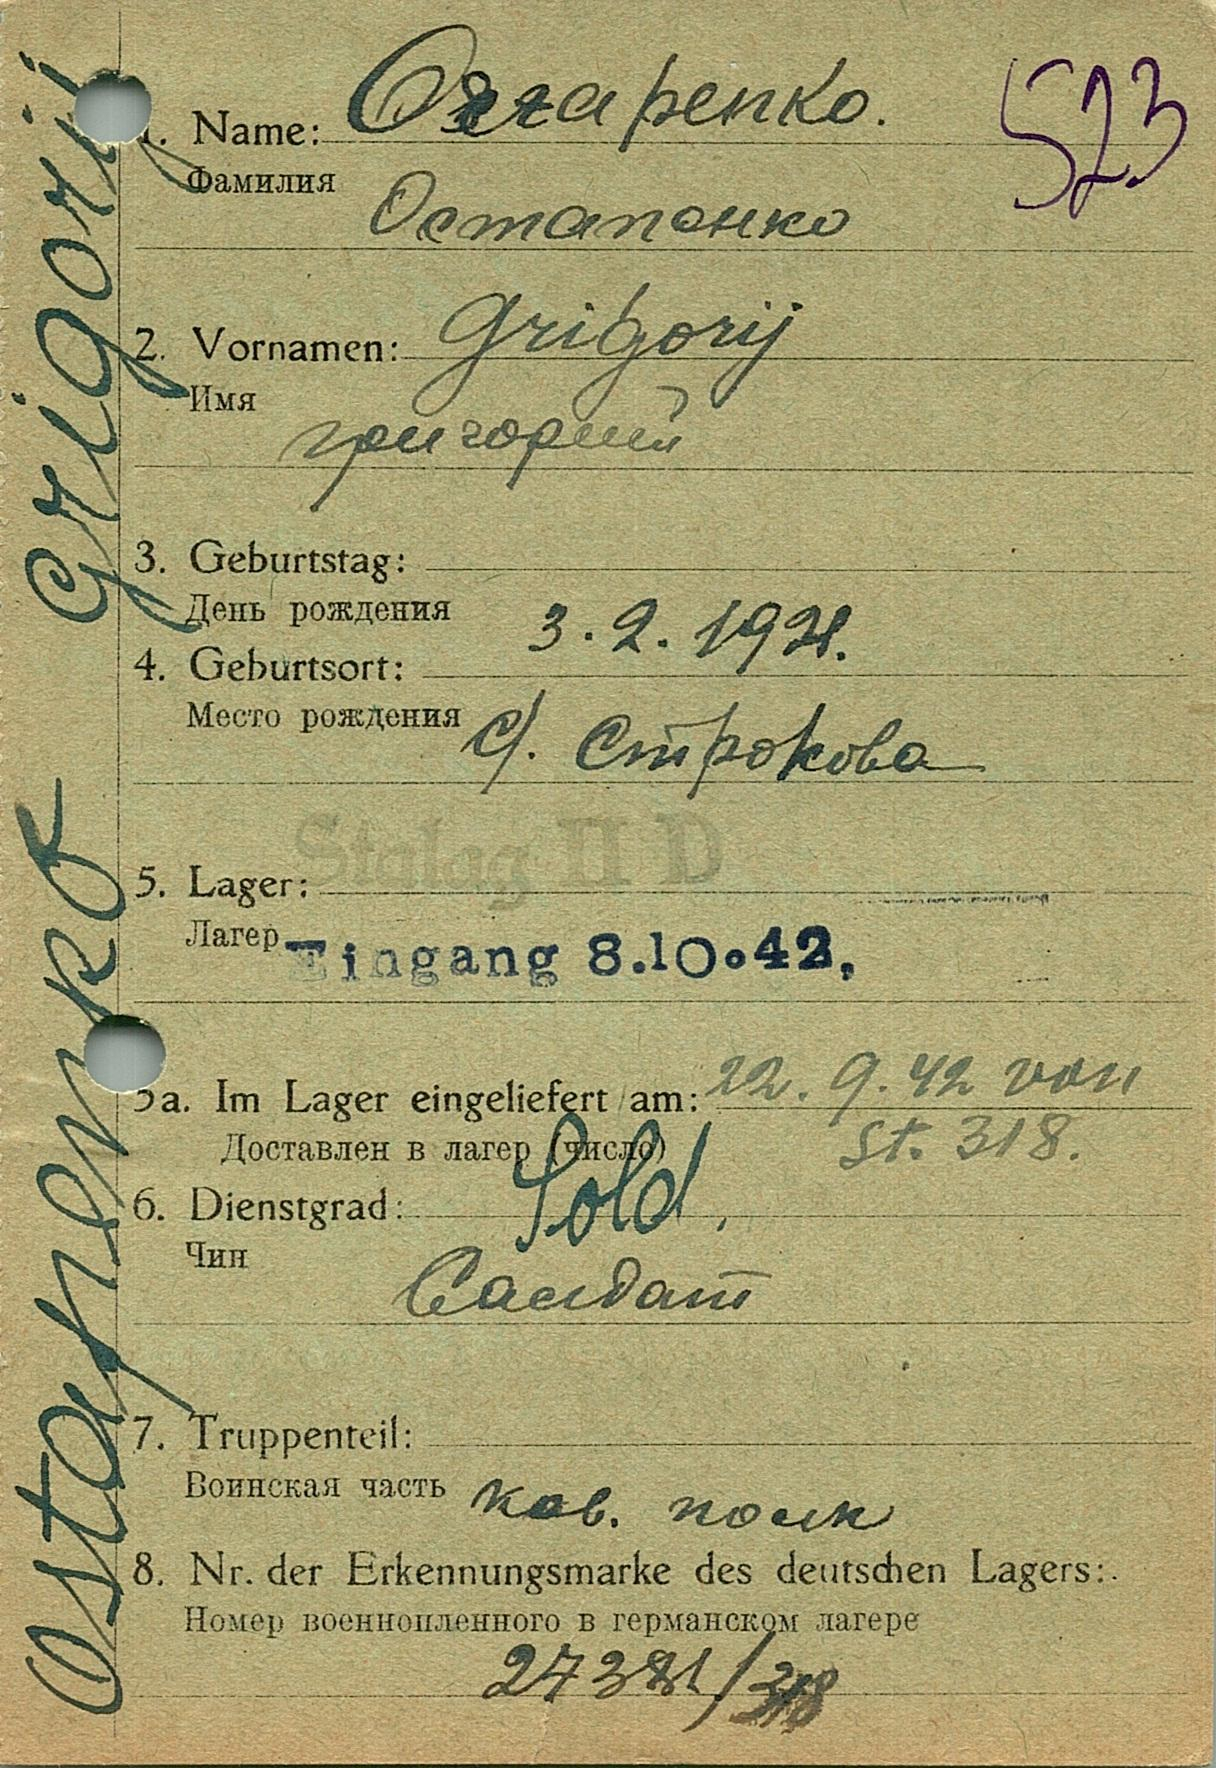 Ostapenko Grigorij
523
1. Name:
Фамилия
Остапенко
2. Vornamen: Grigorij
Имя
григорий
3. Geburtstag:
День рождения 3.2.1921.
4. Geburtsort:
Место рождения с/. Строкова
Stalag II D
5. Lager:
Лагер Eingang 8.10.42.
5a. Im Lager eingeliefert am: 22.9.42 von
Доставлен в лагер (число) St. 318.
6. Dienstgrad: Sold.
Чин
Салдат
7. Truppenteil:
Воинская часть кав. полк
8. Nr. der Erkennungsmarke des deutschen Lagers:
Номер военнопленного в германском лагере
27381/318